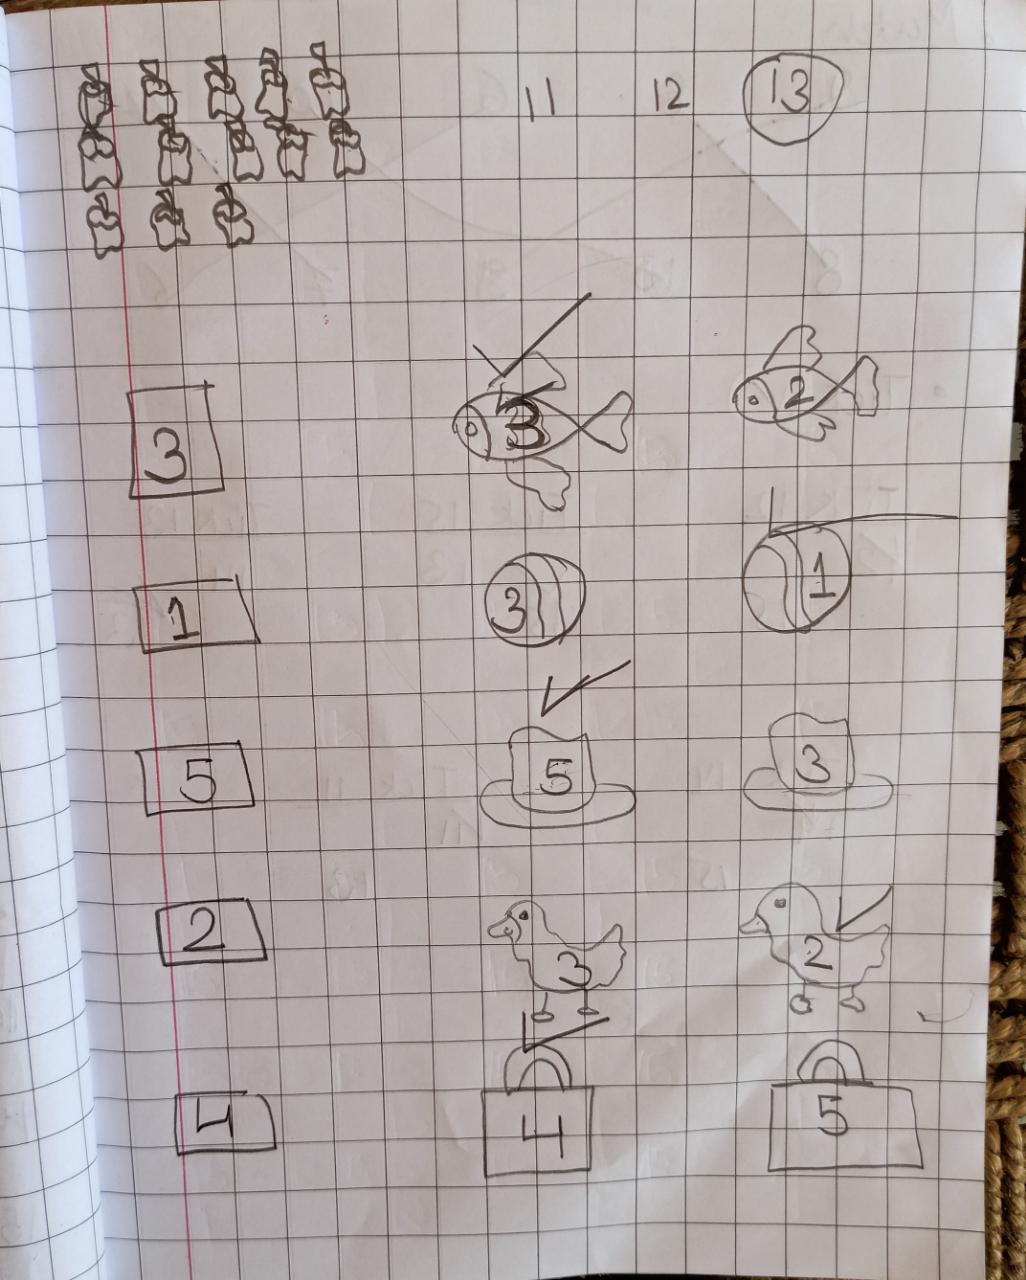 11 12 13
3 3 2
1 3 1
5 5 3
2 3 2
4 4 5